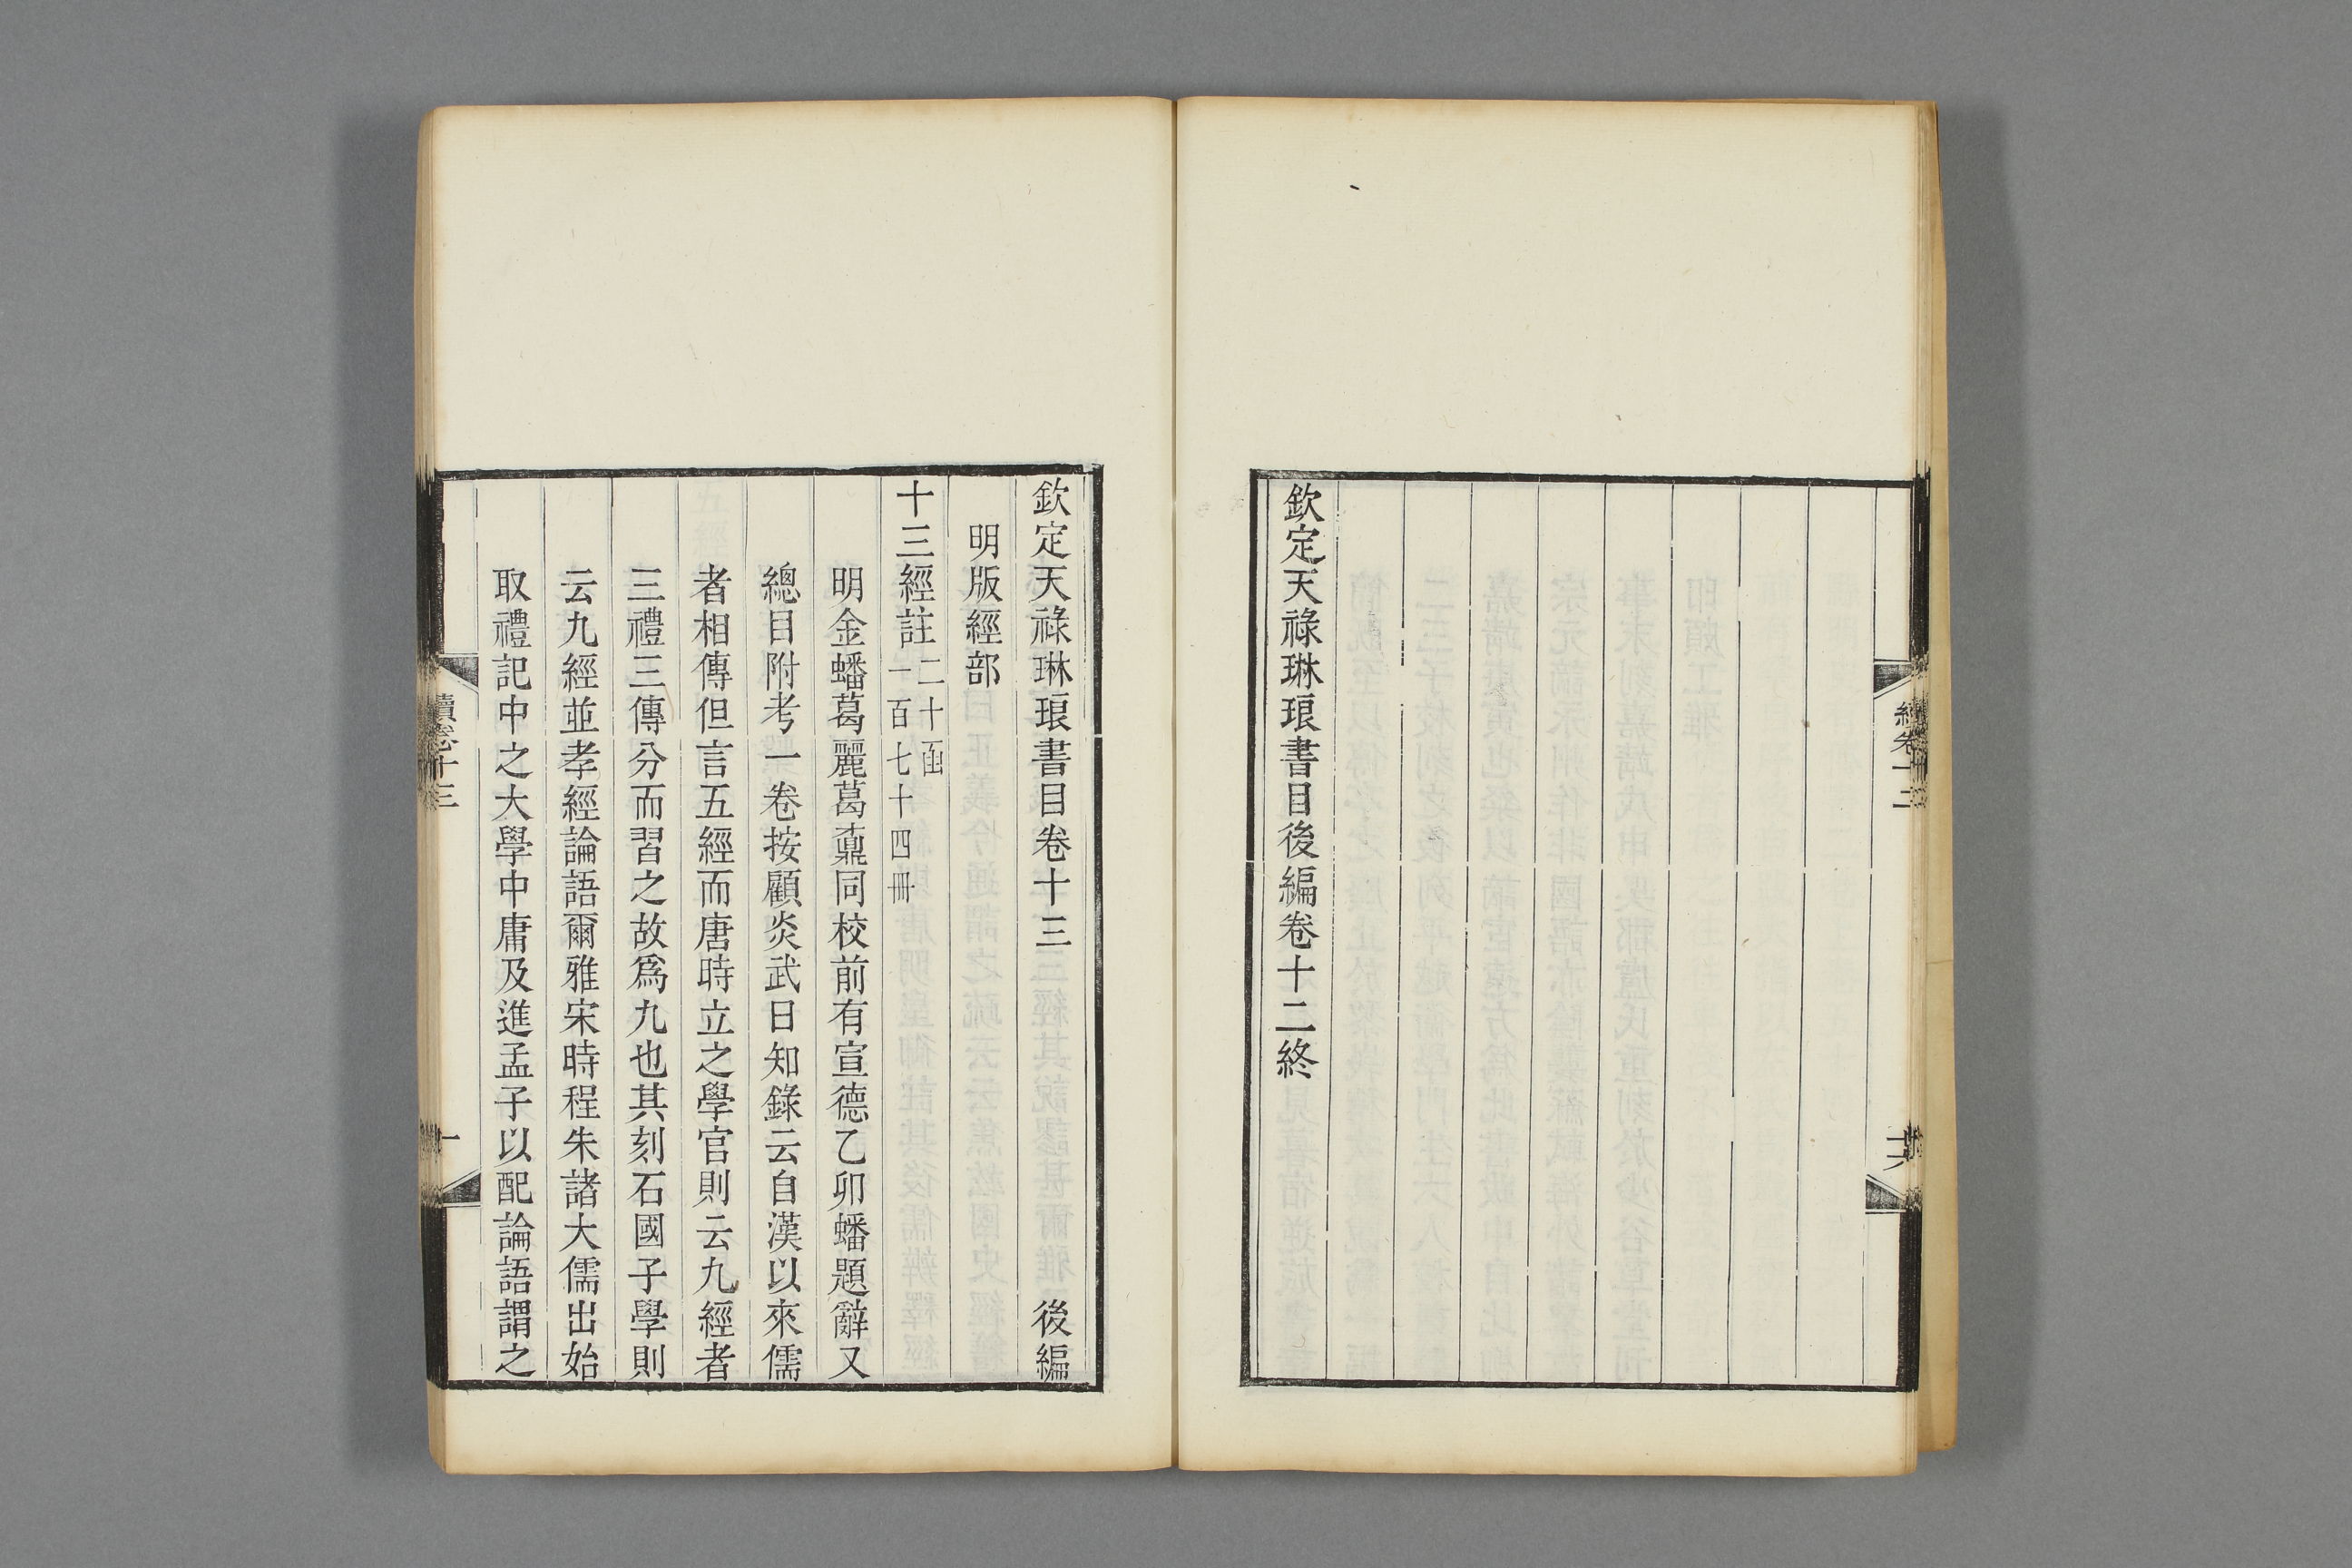 欽定天祿琳琅書目後編卷十二終
欽定天祿琳琅書目卷十三 後編
明版經部
十三經註 二十函
一百七十四冊
明金蟠葛麗葛鼒同校前有宣德乙卯蟠題辭又
總目附考一卷按顧炎武日知錄云自漢以來儒
者相傳但言五經而唐時立之學官則云九經者
三禮三傳分而習之故爲九也其刻石國子學則
云九經並孝經論語爾雅宋時程朱諸大儒出始
取禮記中之大學中庸及進孟子以配論語謂之
續卷十三
一